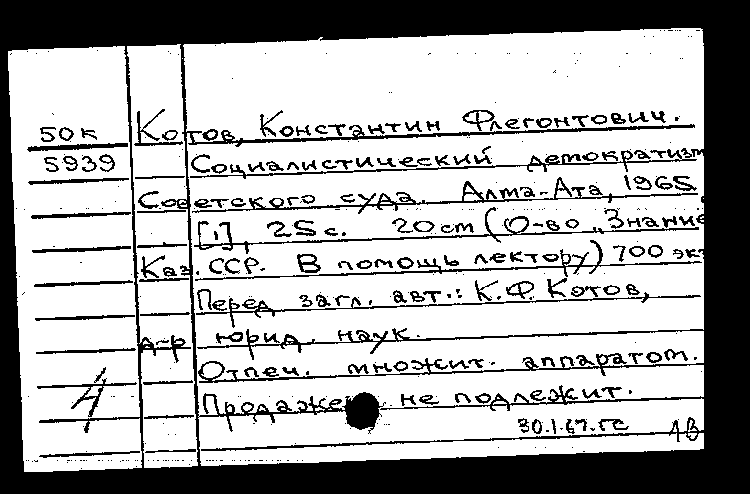 50к Котов, Константин Флегонтович.
5939 Социалистический демократизм
Советского суда. Алма-Ата, 1965,
[1], 25 с. 20 cm (О-во „Знание
Каз. ССР. В помощь лектору) 700 экз
Перед загл. авт.: К.Ф. Котов,
д-р юрид. наук.
Отпеч. множит. аппаратом.
4 Продаже не подлежит.
30.1.67.